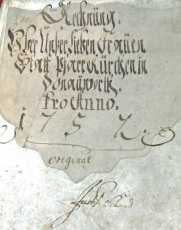 Rechnung.
Über Unser Lieben Frauen
Statt Pfarr Kürchen in
Donauwörth.
Pro Anno.
1757.
Original